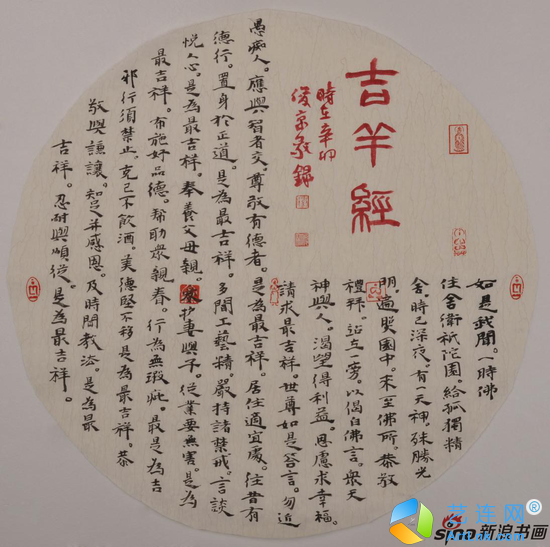 吉羊經
時在辛卯
俊京敬錄
如是我聞。一時佛
住舍衛祇陀園。給孤獨精
舍時已深夜。有一天神。殊勝光
明。遍照園中。来至佛所。恭敬
禮拜。站立一旁。以偈白佛言。衆天
神與人。渴望得利益。思慮求幸福。
請求最吉祥。世尊如是答言。勿近
愚癡人。應與智者交。尊敬有德者。是為最吉祥。居住適宜處。往昔有
德行。置身於正道。是為最吉祥。多聞工藝精。嚴持諸禁戒。言談
悦人心。是為最吉祥。奉養父母親。护妻與子。從業要無害。是為
最吉祥。布施好品德。幫助衆親眷。行為無瑕疵。最是為吉
邪行須禁止。克己不飲酒。美德堅不移。是為最吉祥。恭
敬與謙讓。知足并感恩。及時聞教法。是為最
吉祥。忍耐與順從。是為最吉祥。
艺连网®
sina新浪书画